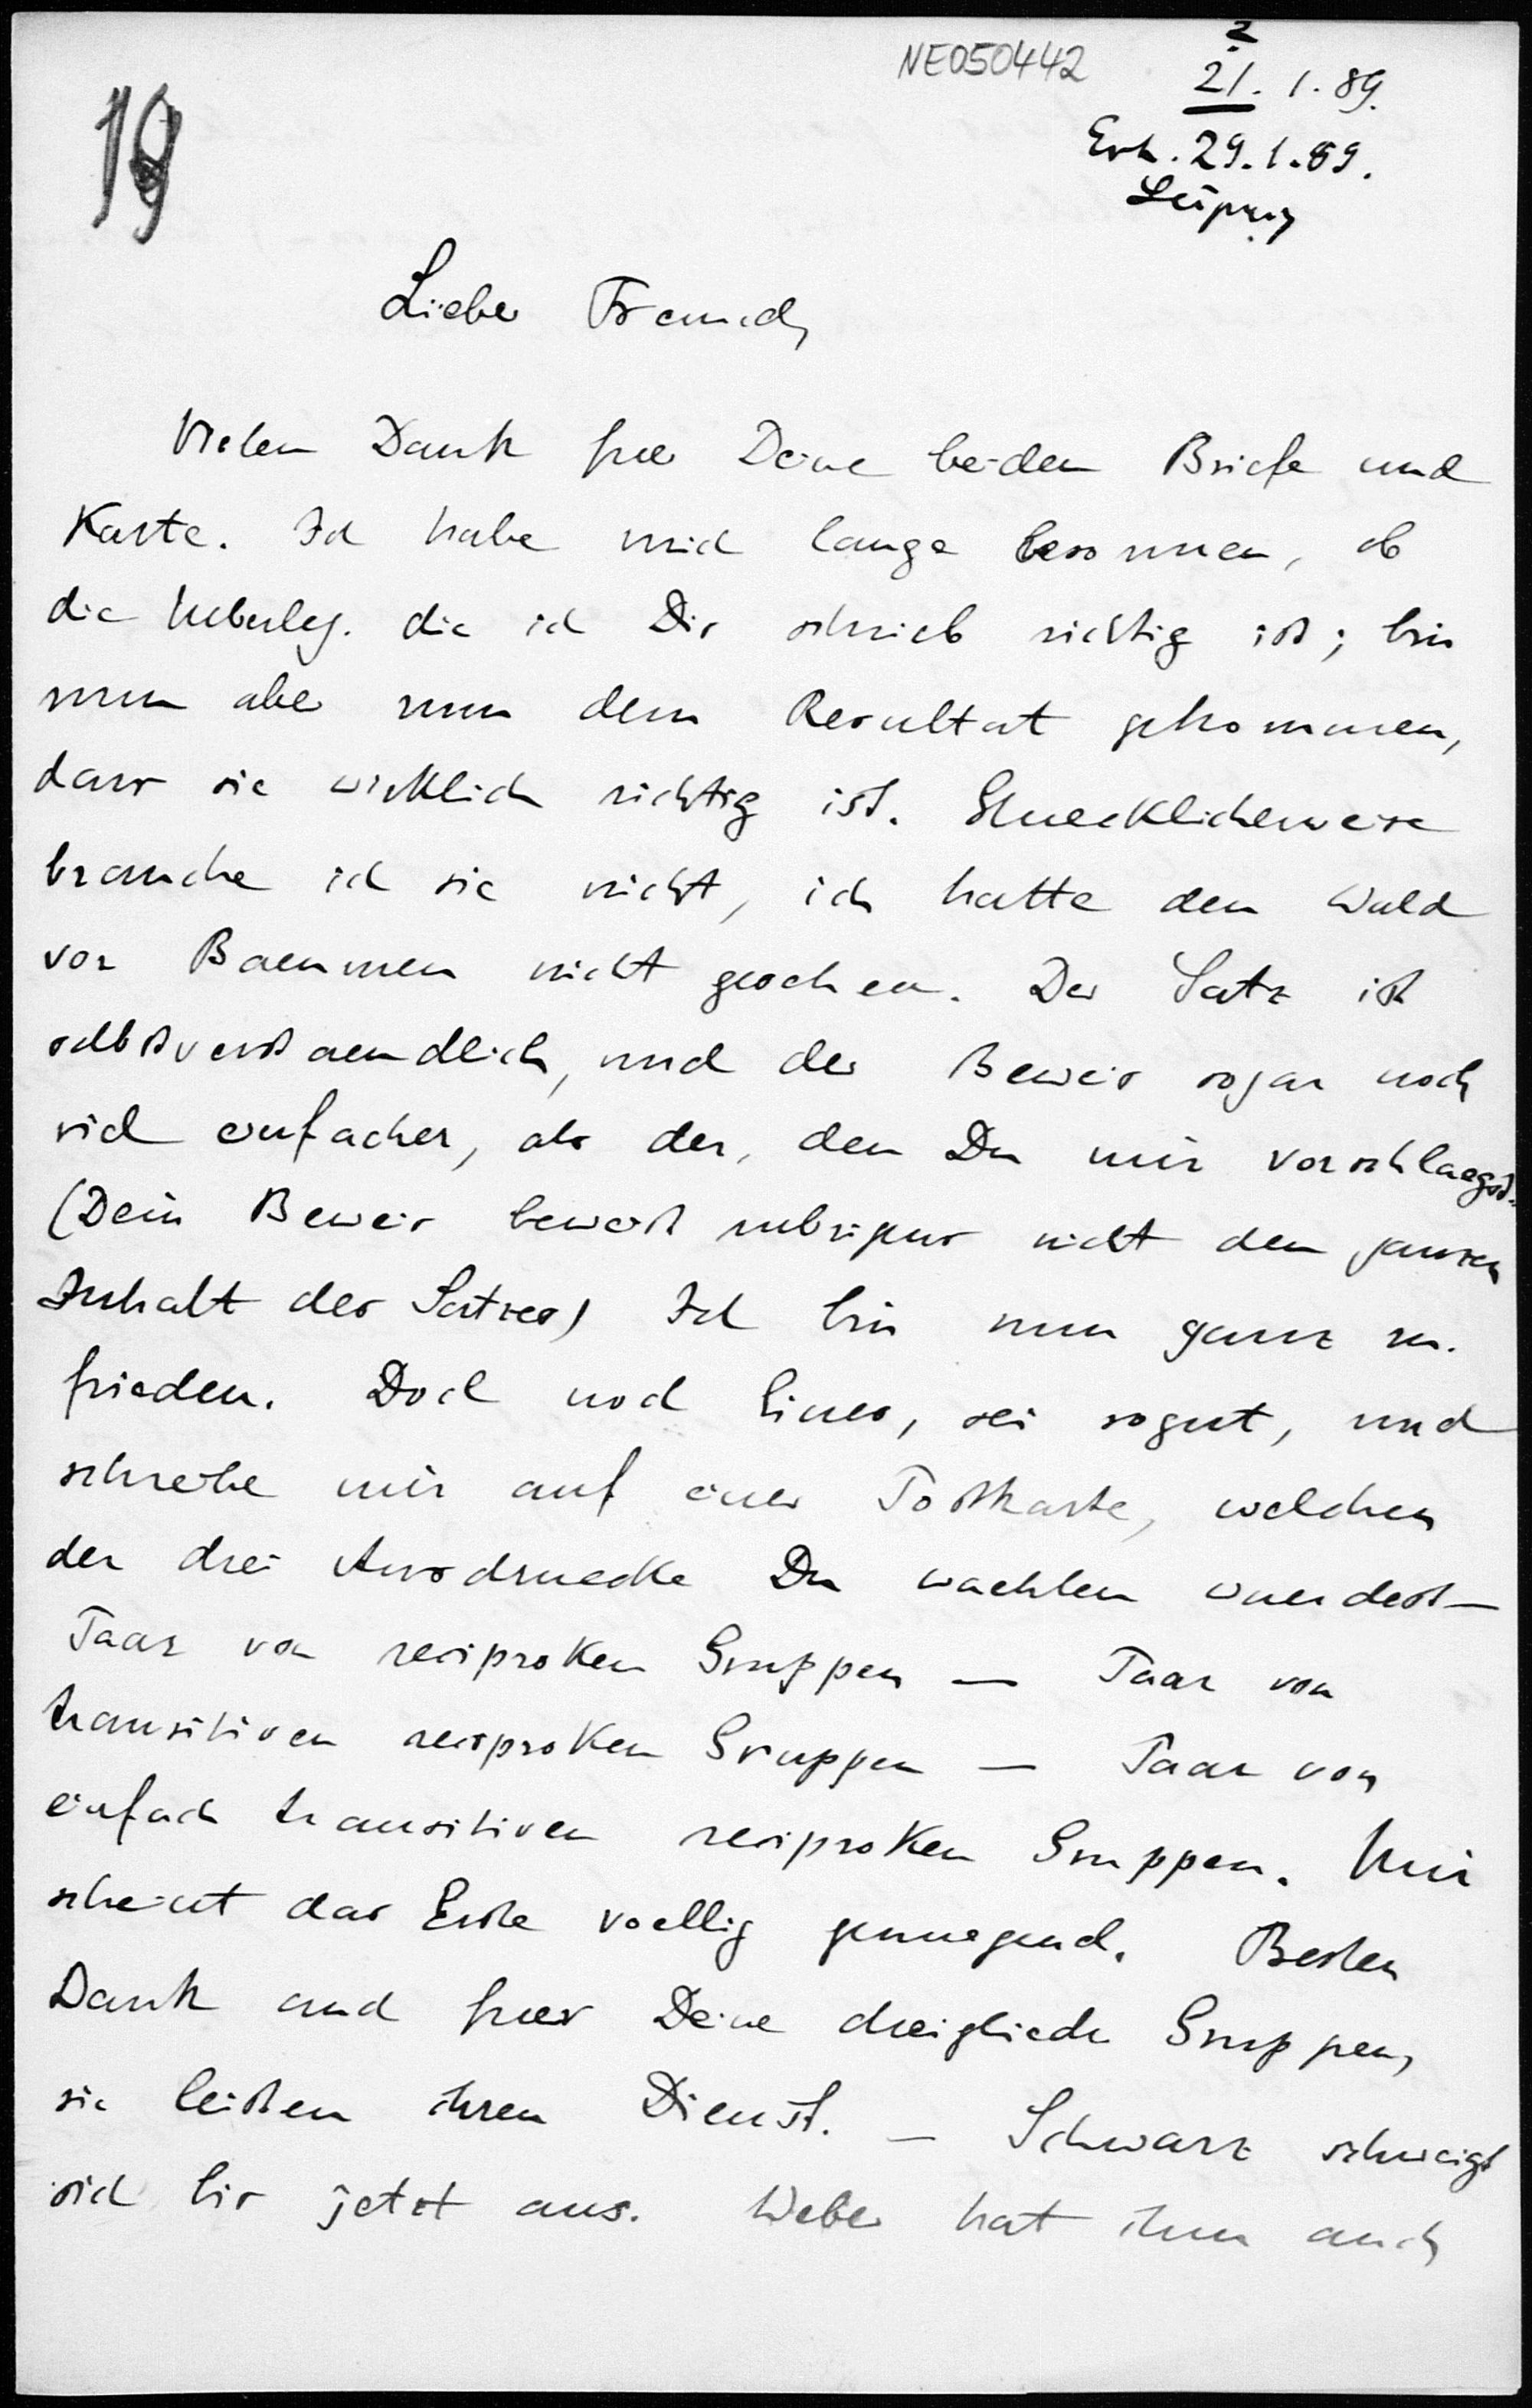 NE050442
2
21. 1. 89.
Erh. 29. 1. 89.
Leipzig
19
Lieber Freund,
Vielen Dank fuer Deine beiden Briefe und
Karte. Ich habe mich lange besonnen, ob
die Ueberleg. die ich Dir schrieb richtig ist; bin
nun aber zum dem Resultat gekommen,
dass sie wirklich richtig ist. Gluecklicherweise
brauche ich sie nicht, ich hatte den Wald
vor Baeumen nicht gesehen. Der Satz ist
selbstverstaendlich, und der Beweis sogar noch
viel einfacher, als der, den Du mir vorschlaegst.
(Dein Beweis beweist uebrigens nicht den ganzen
Inhalt des Satzes) Ich bin nun ganz zu-
frieden. Doch noch Eines, sei so gut, und
schreibe mir auf einer Postkarte, welchen
der drei Ausdruecke Du waehlen wuerdest —
Paar von reciproken Gruppen — Paar von
transitiven reciproken Gruppen — Paar von
einfach transitiven reciproken Gruppen. Mir
scheint das Erste voellig genuegend. Besten
Dank auch fuer Deine dreigliedr Gruppen,
sie leisten ihren Dienst. — Schwarz schweigt
sich bis jetzt aus. Weber hat ihm auch